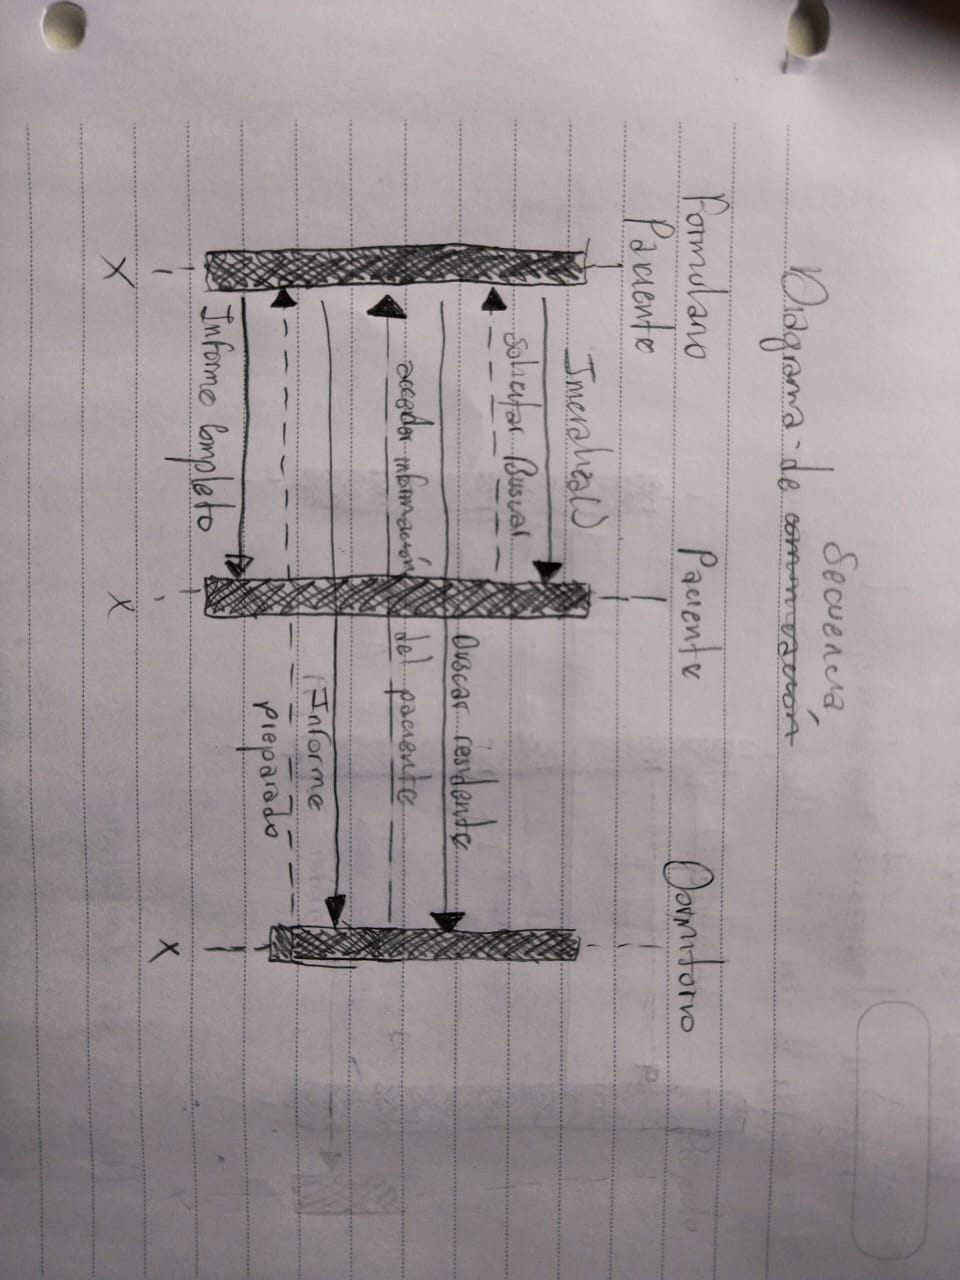 Secuencia
Diagrama de comunicación
Formulario
Paciente
Paciente
Dormitorio
Inicializa()
Solicitar Buscar
Buscar residente
acceder información del paciente
Informe
preparado
Informe Completo
X
X
X